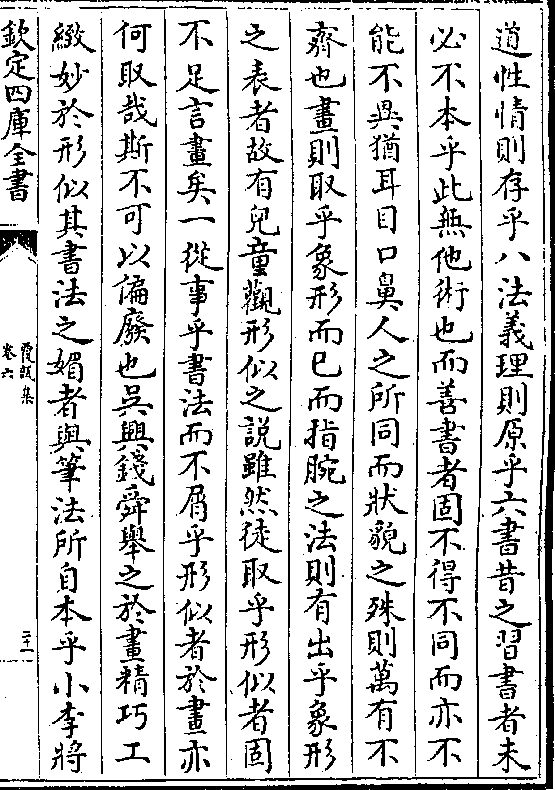 道性情則存乎八法義理則原乎六書昔之習書者未
必不本乎此無他術也而善書者固不得不同而亦不
能不異猶耳目口鼻人之所同而狀貌之殊則萬有不
齊也畫則取乎象形而已而指腕之法則有出乎象形
之表者故有兒童觀形似之說雖然徒取乎形似者固
不足言畫矣一從事乎書法而不屑乎形似者於畫亦
何取哉斯不可以偏廢也吳興錢舜舉之於畫精巧工
緻妙於形似其書法之媚者與筆法所自本乎小李將
欽定四庫全書
霞外集
卷六
二十一